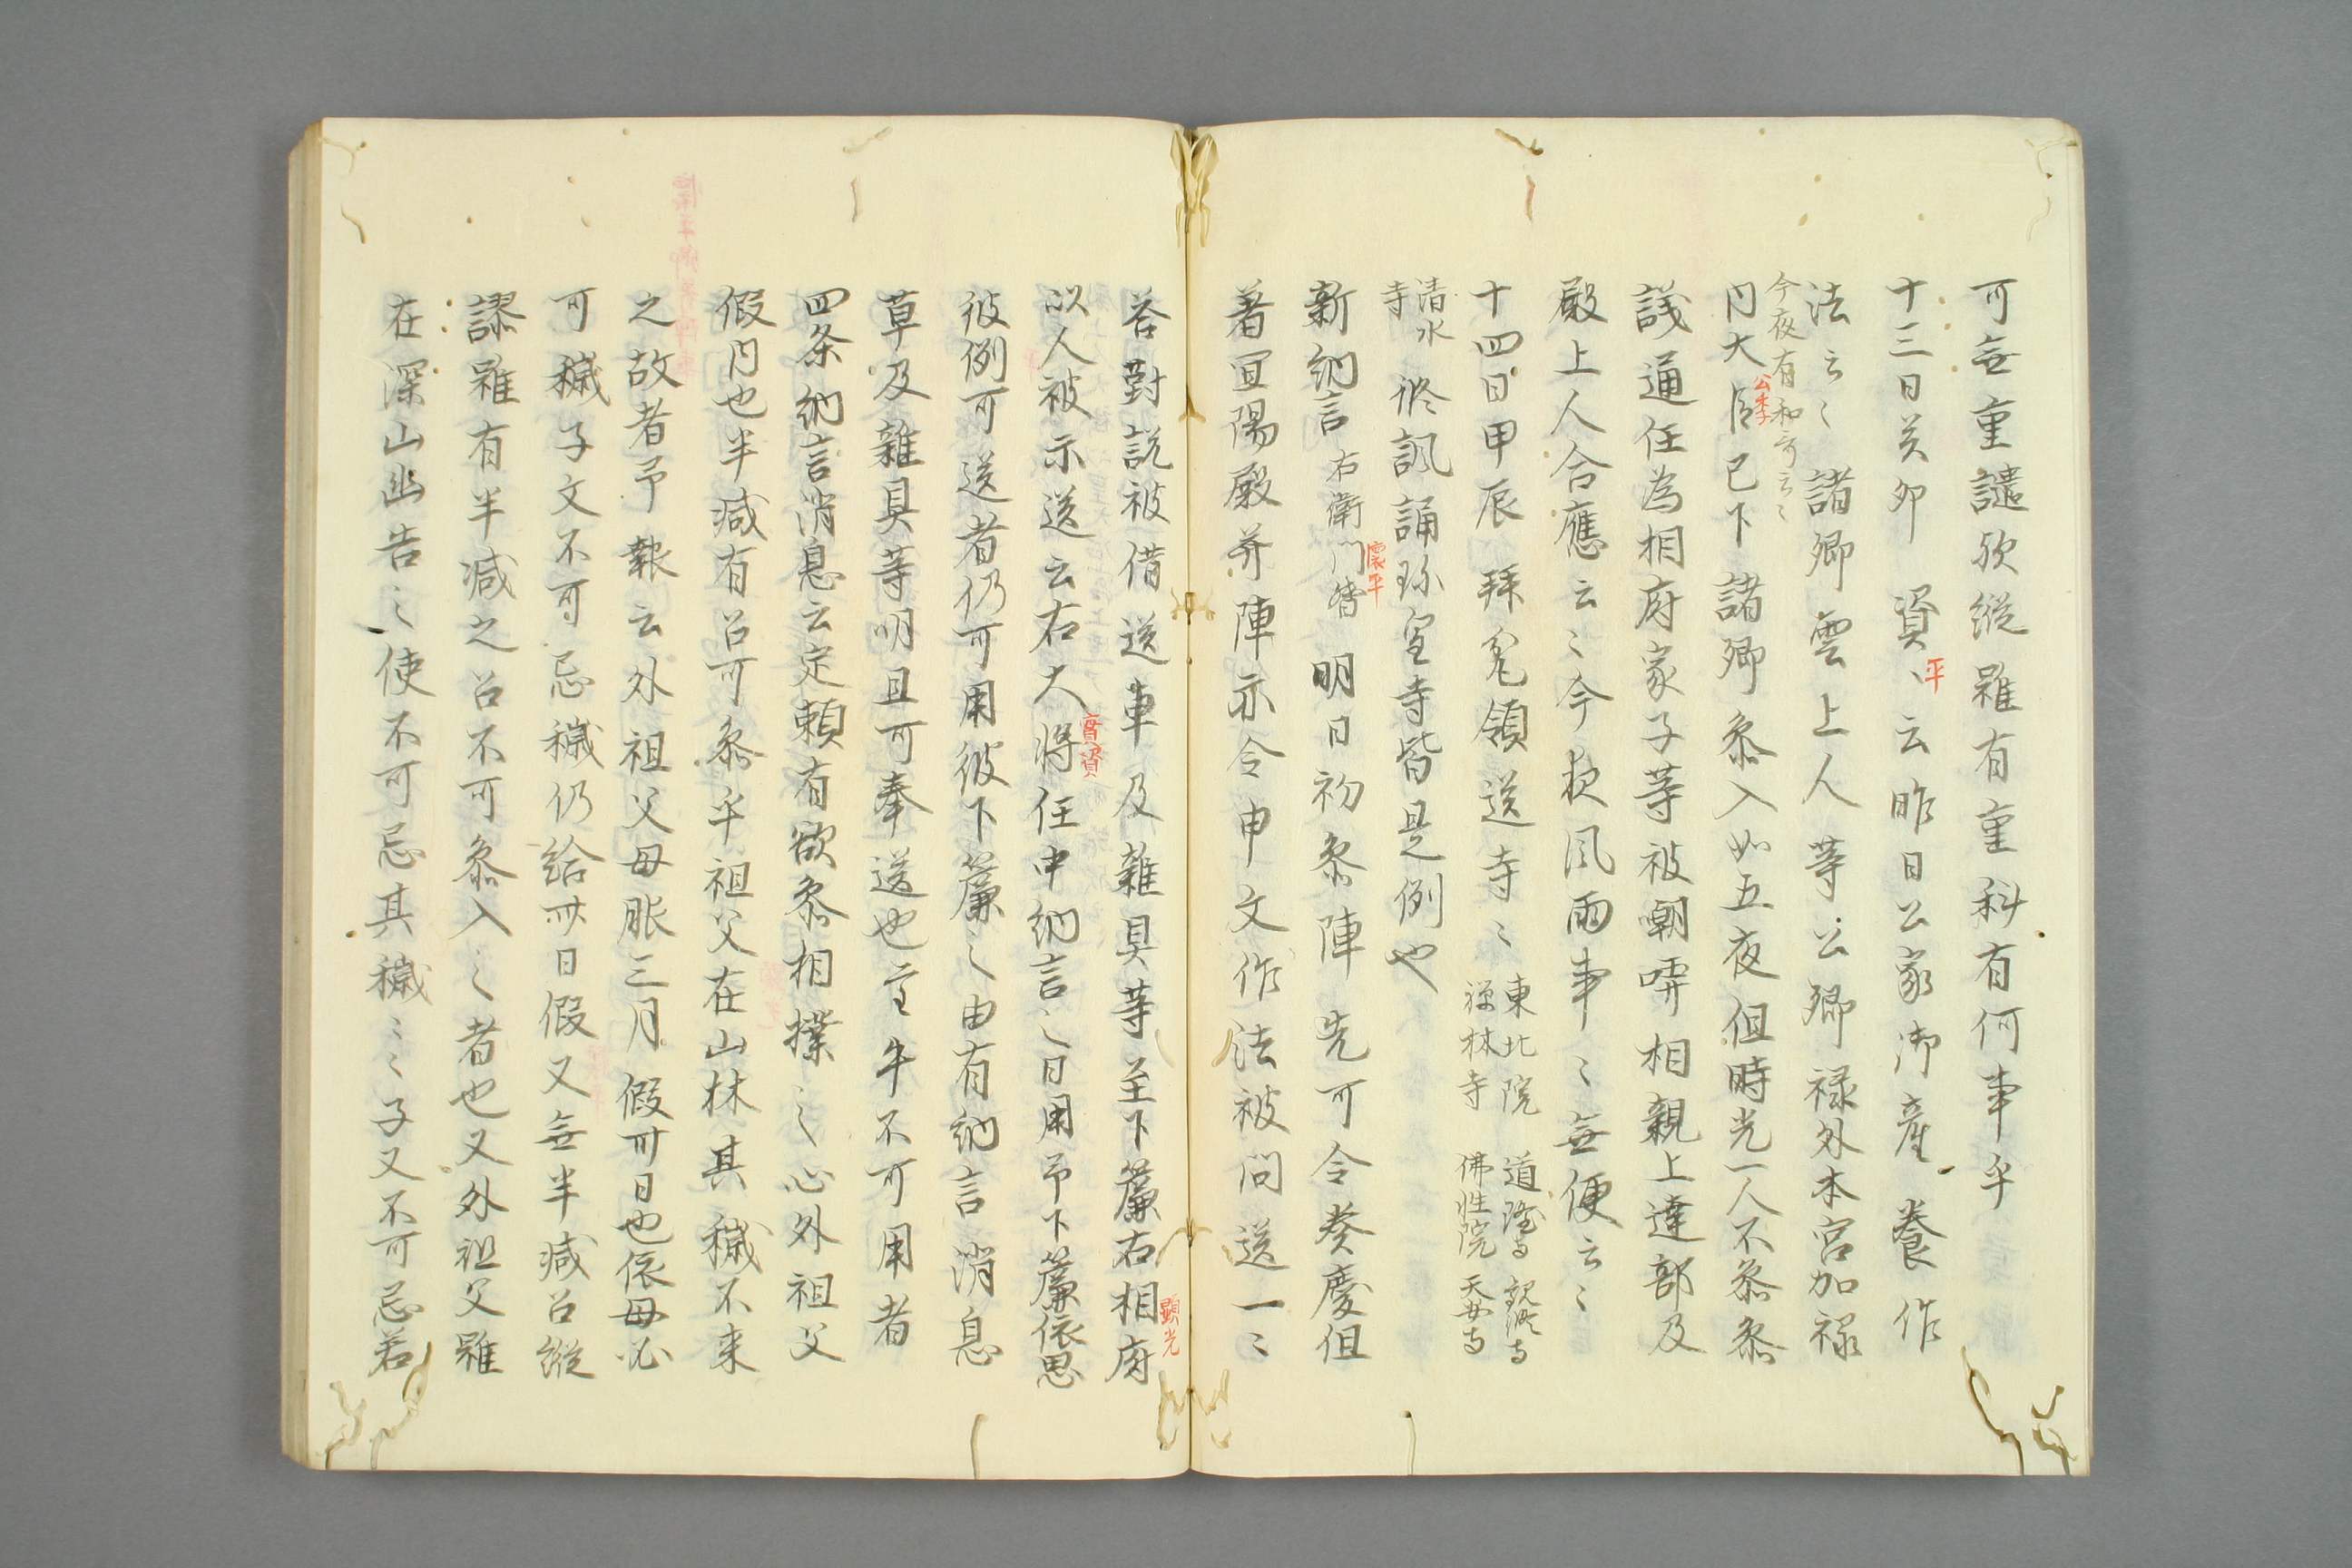 可無重譴欤縦雖有重科有何事乎
十三日癸卯 資、云昨日公家御産養作
平
法云〻諸卿雲上人等公卿禄外本宮加禄
今夜有和哥云〻
内大臣已下諸卿参入如五夜但時光一人不参参
公季
議通任為相府家子等被嘲哢相親上達部及
殿上人合應云〻今夜風雨事〻無便云〻
十四日甲辰 拝𡨚領送寺〻 東北院 道澄寺 観修寺
禅林寺 佛性院 天安寺
清水
寺 修諷誦珎皇寺皆是例也
新納言右衛門督 明日初参陣先可令奏慶但
懐平
着冝陽殿并陣亦令申文作法被問送一〻
答對説被借送車及雜具等至下簾右相府
顕光
以人被示送云右大将任中納言之日用吊下簾依思
實資
彼例可送者仍可用彼下簾之由有納言消息
草及雜具等明旦可奉送也至牛不可用者
四条納言消息云定頼有欲参相撲之心外祖父
假内也半減有召可参乎祖父在山林其穢不来
之故者予報云外祖父母服三月假卅日也依母必
可穢子文不可忌穢仍給卅日假又無半減召縦
謬雖有半減之召不可参入之者也又外祖父雖
在深山幽告之使不可忌其穢〻子又不可忌若